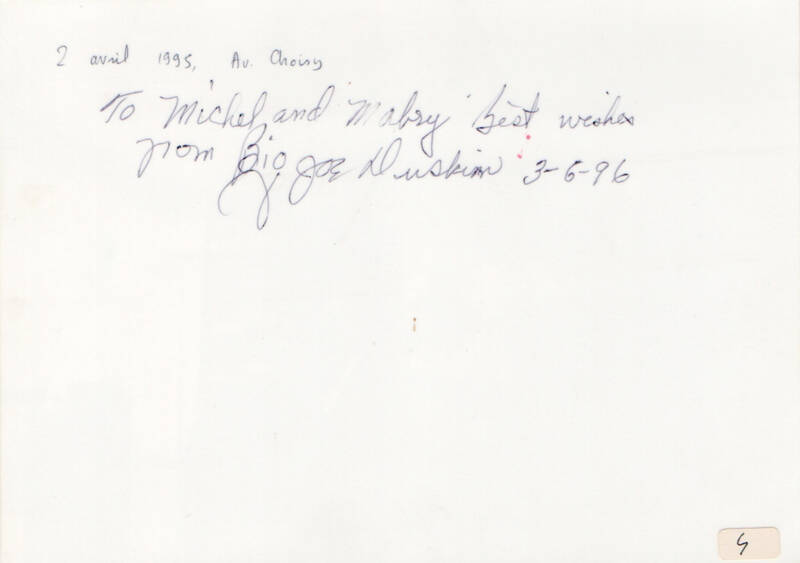 2 avril 1995, Av. Choisy
To Michel and Mabry Best wishes
From Big Joe Duskin 3-6-96